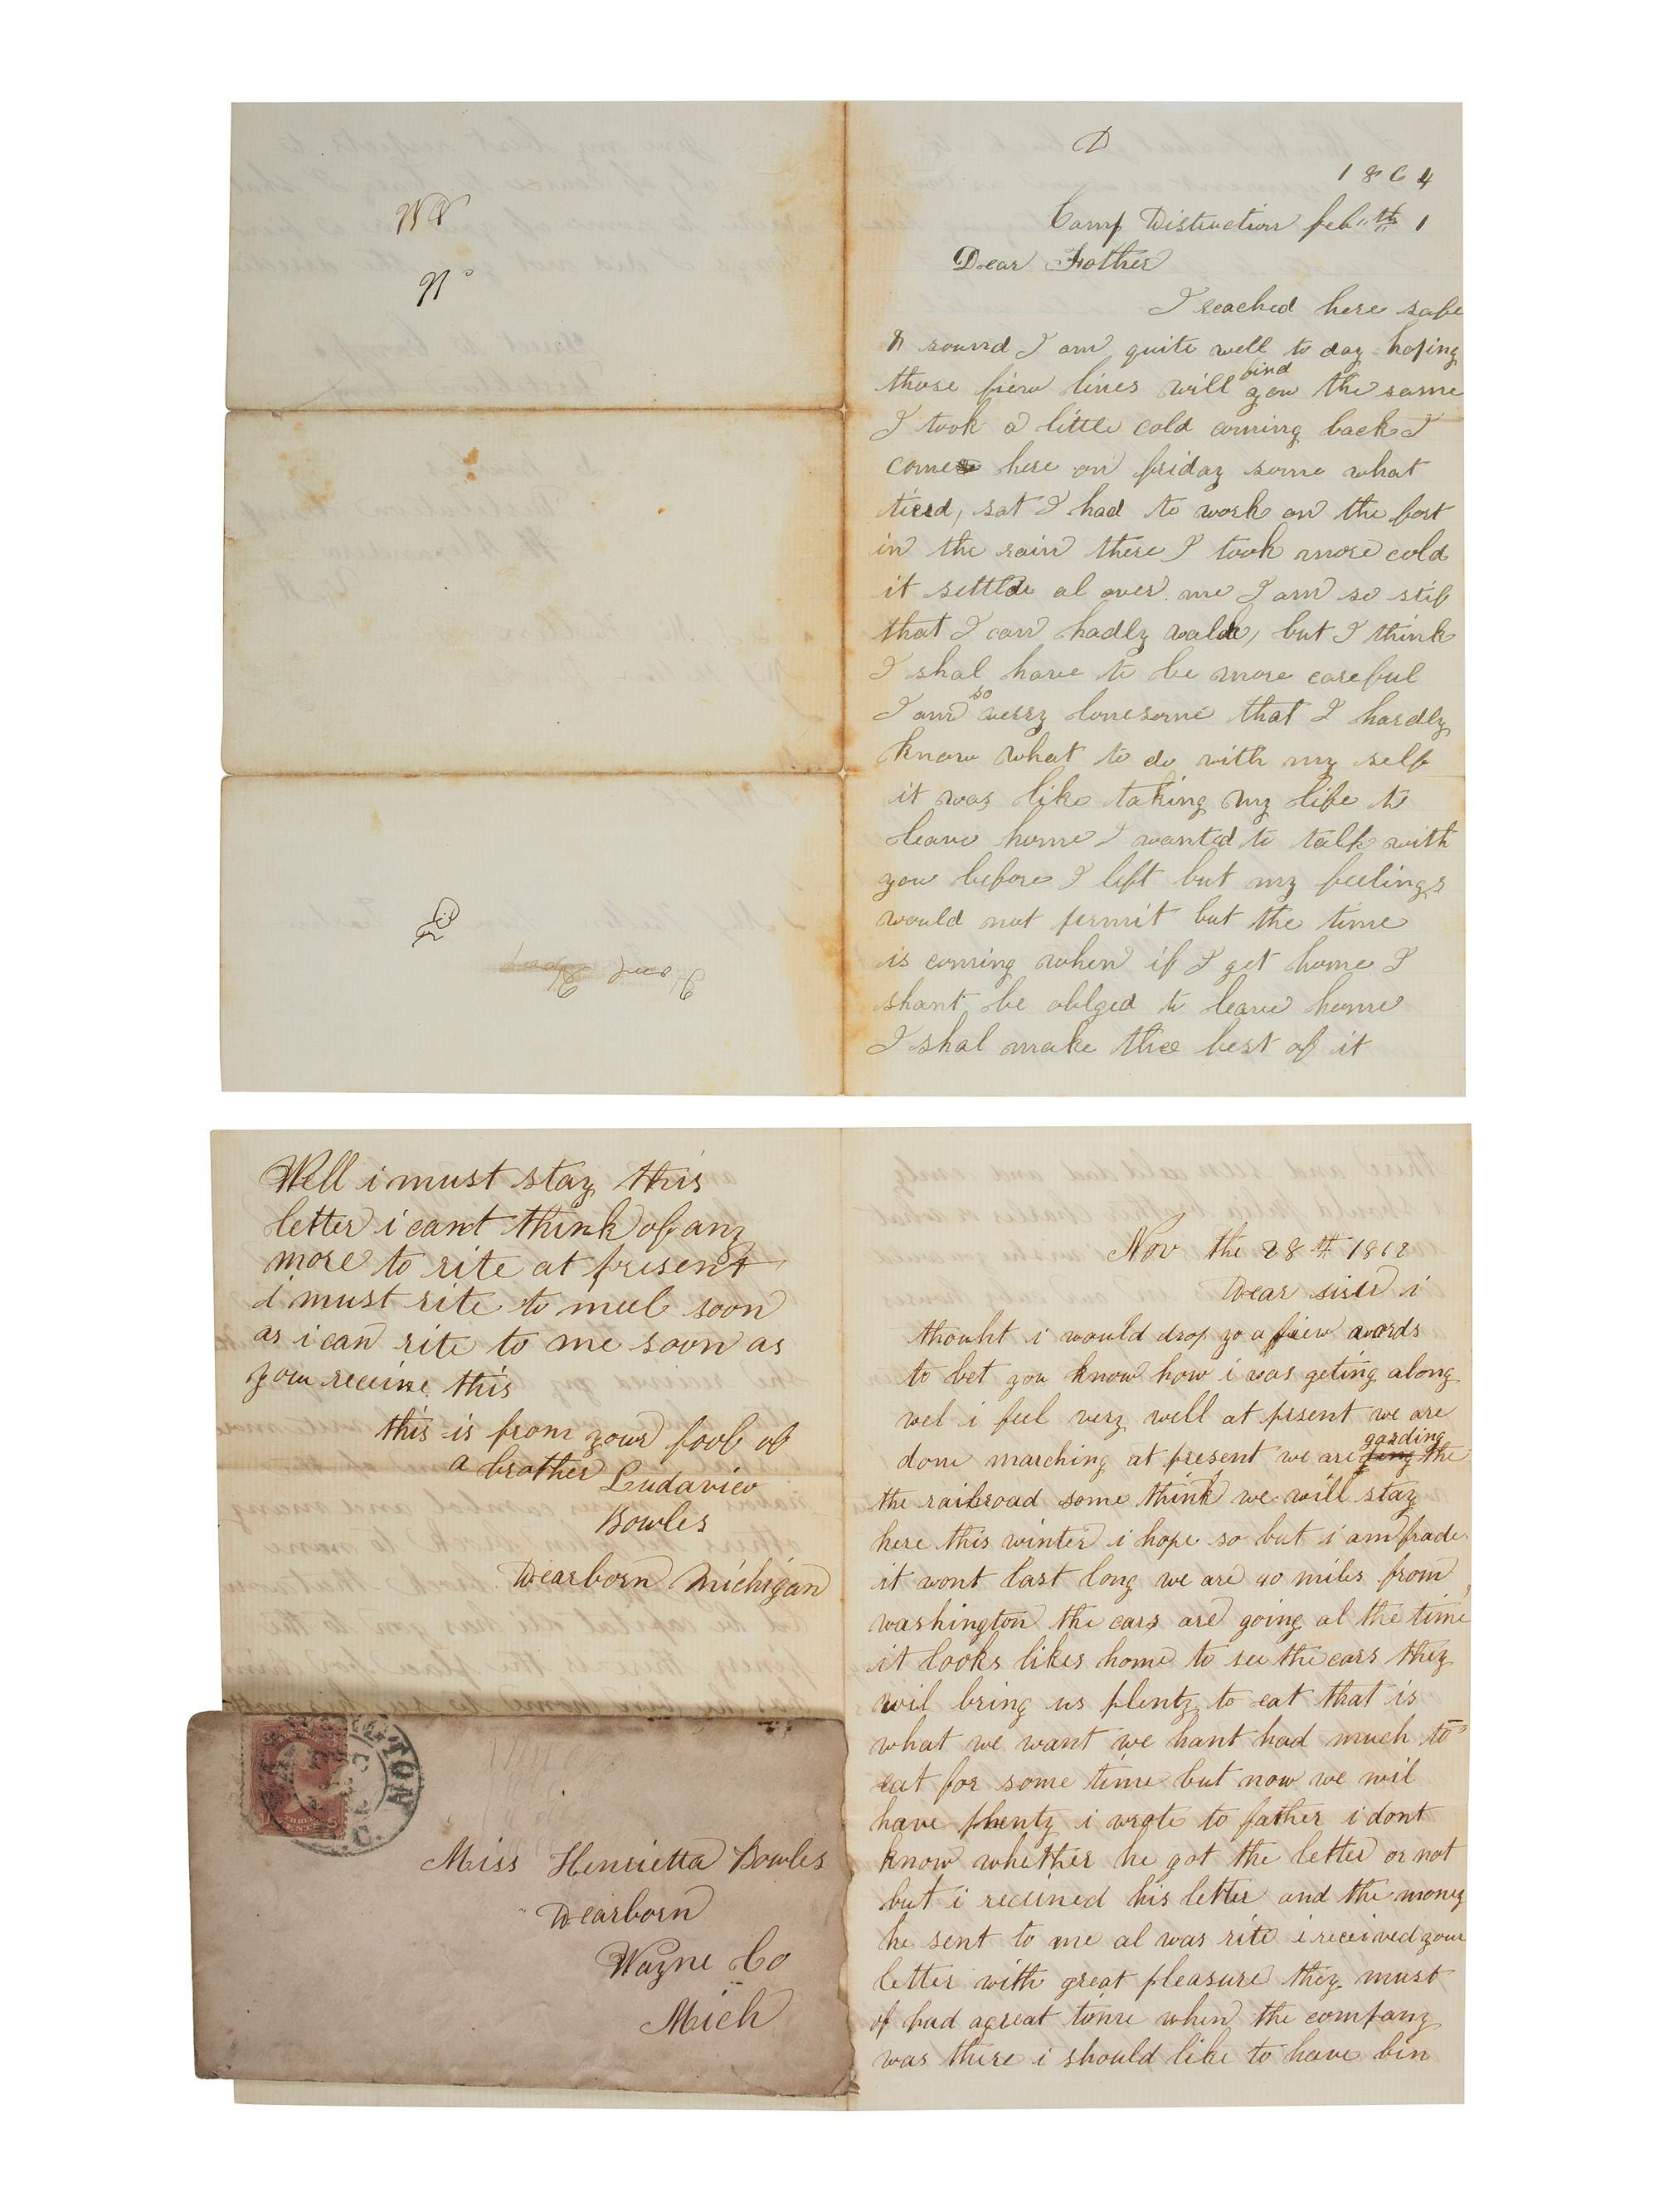 D
1864
Camp Distruction feb th 1
Dear Father
I reached here safe
& sound I am quite well to day hoping
those fiew lines will find you the same
I took a little cold coming back I
come here on friday some what
tierd, sat I had to work on the fort
in the rain there I took more cold
it settlde al over me I am so stif
that I can hadly walk, but I think
I shal have to be more careful
I am so verry lonesome that I hardly
know what to do with my self
it was like taking my life to
leave home I wanted to talk with
you before I left but my feelings
would not permit but the time
is coming when if I get home I
shant be oblged to leave home
I shal make thee best of it
Well i must stay this
letter i cant think of any
more to rite at present
i must rite to meel soon
as i can rite to me soon as
you receive this
this is from your fool of
a brother Ludavico
Bowles
Dearborn Michigan
Nov the 28th 1862
Dear sister i
thouht i would drop yo a fiew words
to let you know how i was geting along
wel i feel very well at prsent we are
done marching at present we are garding the
the railroad some think we will stay
here this winter i hope so but i am frade
it wont last long we are 40 miles from
washington the cars are going al the time
it looks likes home to see the cars they
wil bring us plenty to eat that is
what we want we hant had much to
eat for some time but now we wil
have plenty i wrote to father i dont
know whether he got the letter or not
but i recieved his letter and the money
he sent to me al was rite i received your
letter with great pleasure they must
of had a great time when the company
was there i should like to have bin
WASHINGTON
D.C.
Miss Henrietta Bowles
Dearborn
Wayne Co
Mich